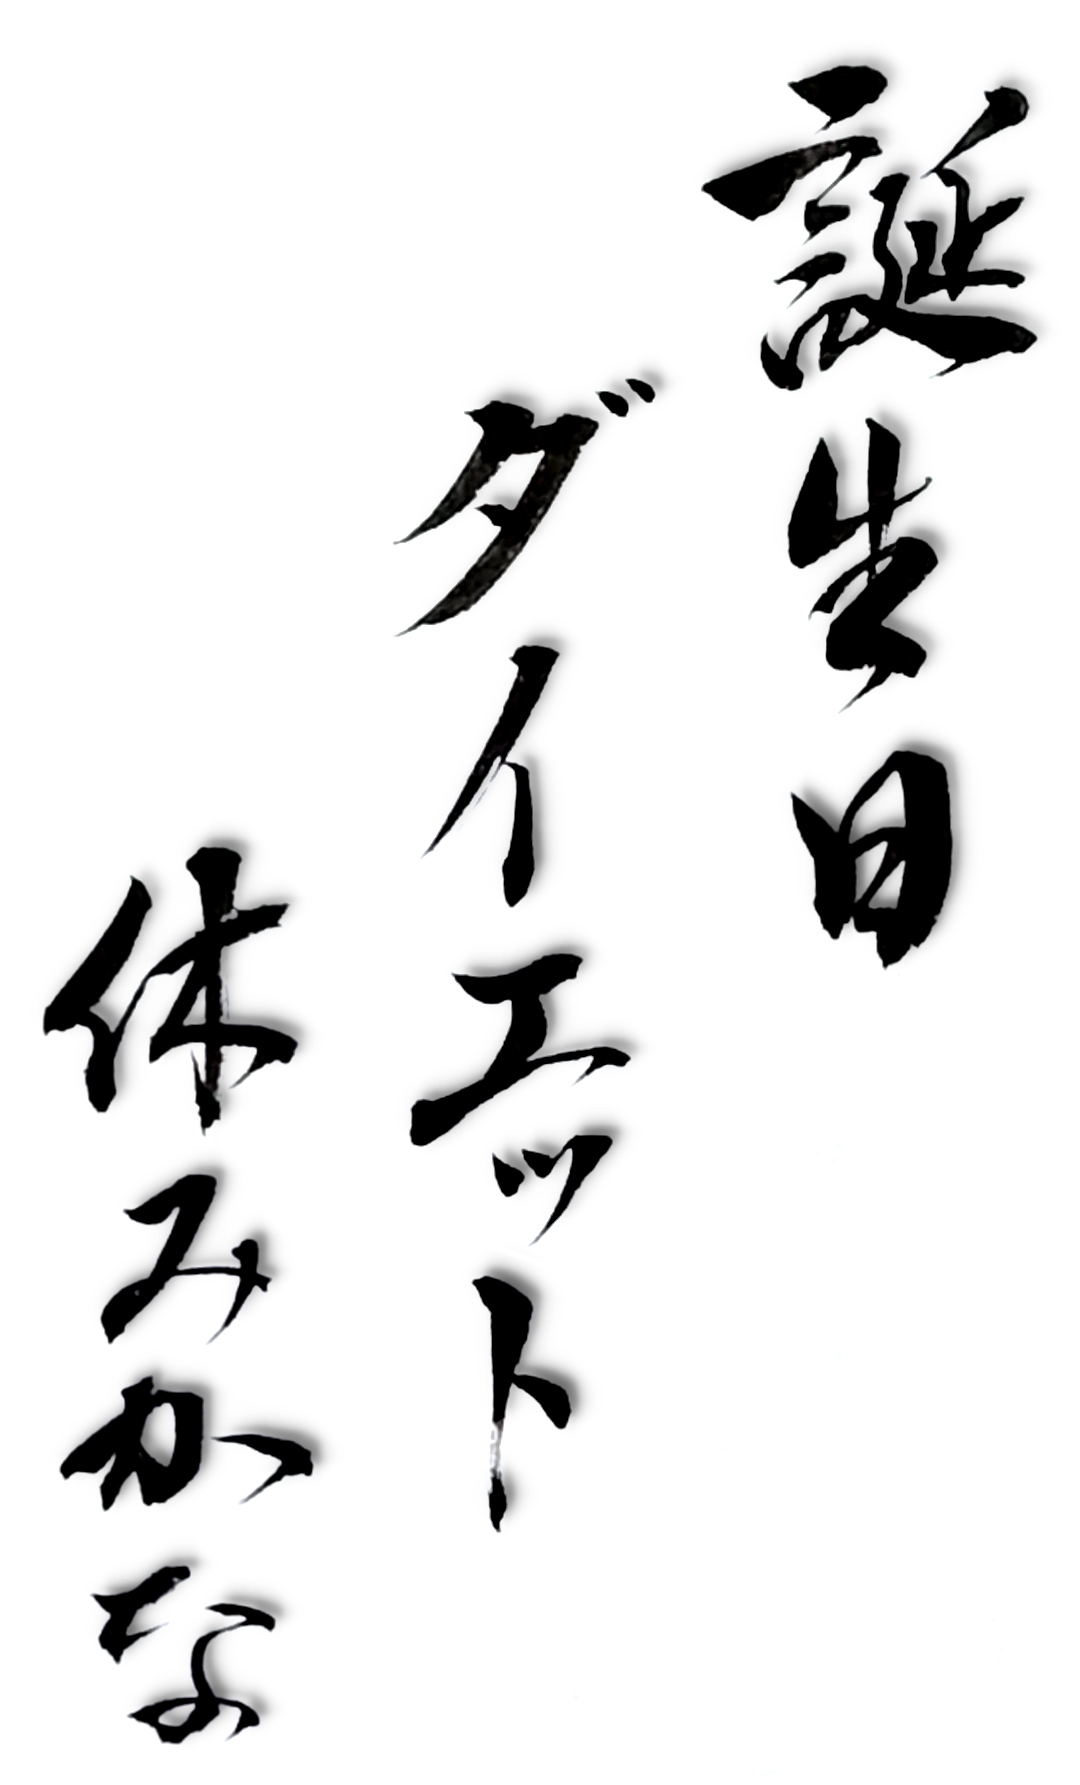 誕生日
ダイエット
休みかな